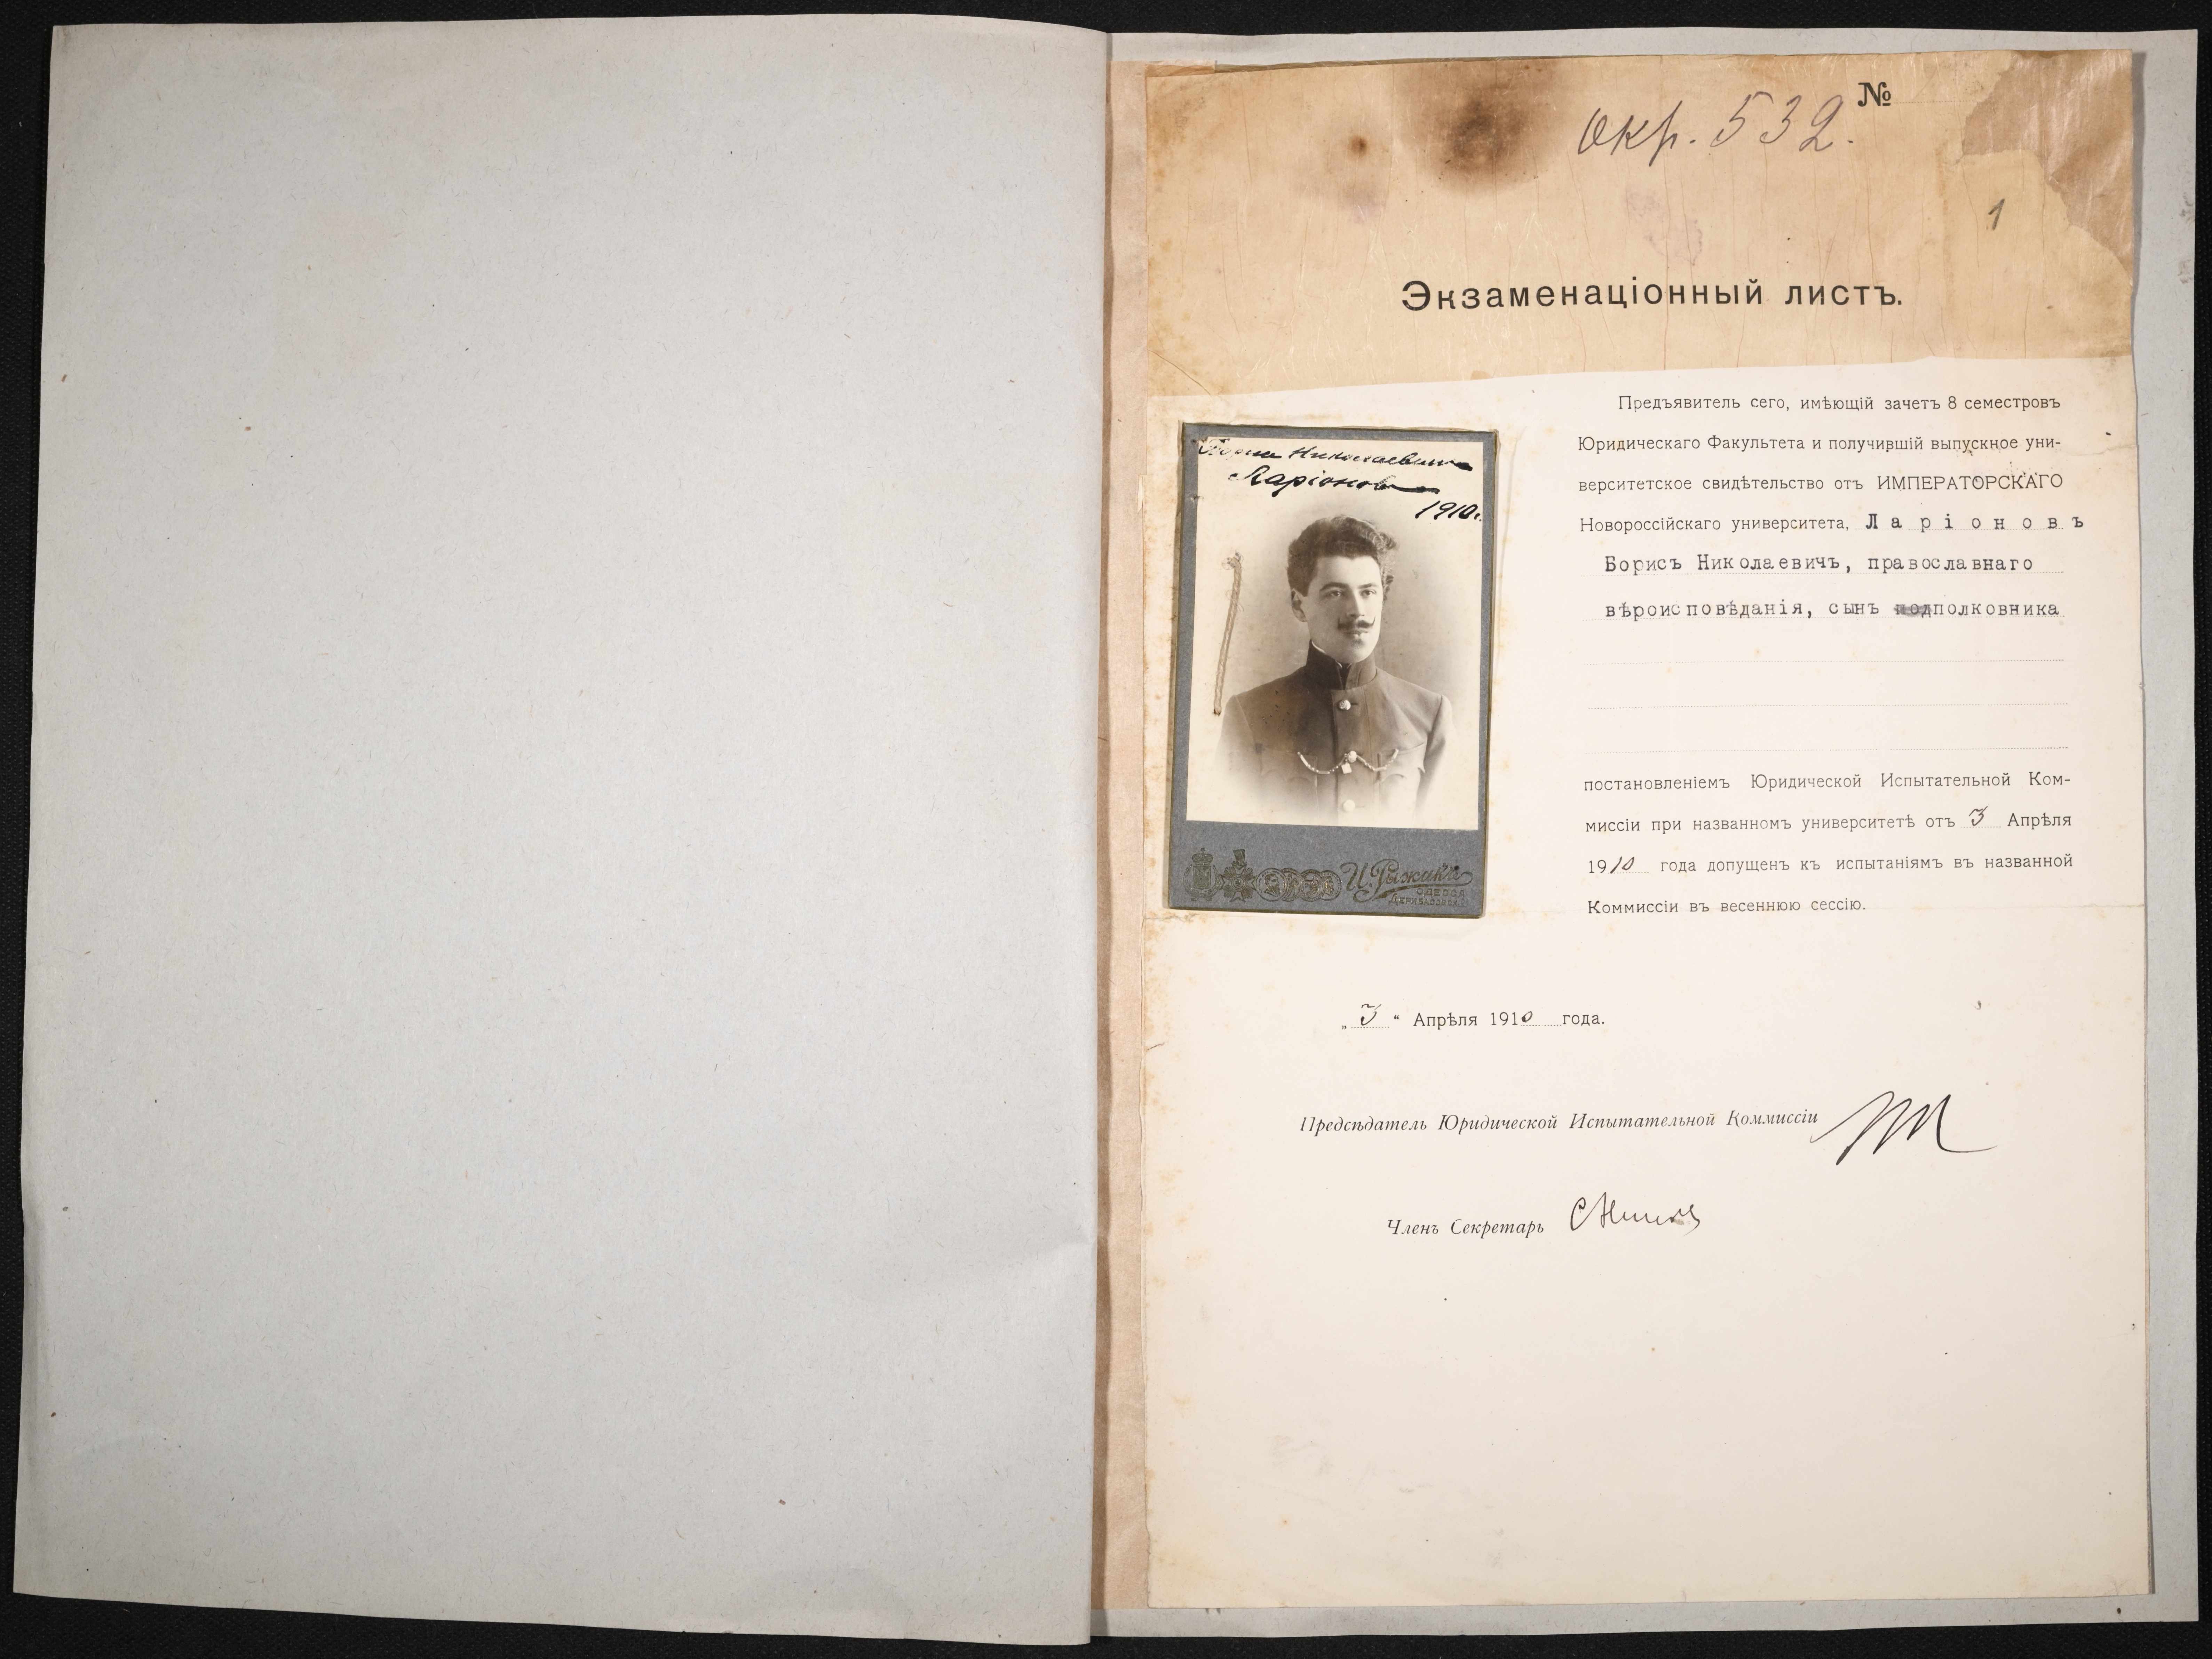 №
окр. 532.
1
Экзаменаціонный листъ.
Предъявитель сего, имѣющій зачетъ 8 семестровъ
Юридическаго Факультета и получившій выпускное уни-
верситетское свидѣтельство отъ ИМПЕРАТОРСКАГО
Новороссійскаго университета, Ларіоновъ
Борисъ Николаевичъ, православнаго
вѣроисповѣданія, сынъ подполковника
постановленіемъ Юридической Испытательной Ком-
миссіи при названномъ университетѣ отъ 3 Апрѣля
1910 года допущенъ къ испытаніямъ въ названной
Коммиссіи въ весеннюю сессію.
Борисъ Николаевичъ
Ларіоновъ
1910г.
И. Рыжакъ
ОДЕССА
„3“ Апрѣля 1910 года.
Предсѣдатель Юридической Испытательной Коммиссіи
Членъ Секретарь